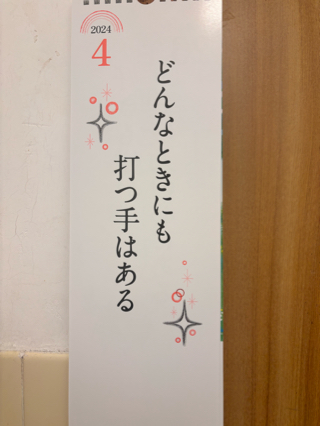 2024
4
どんなときにも
打つ手はある